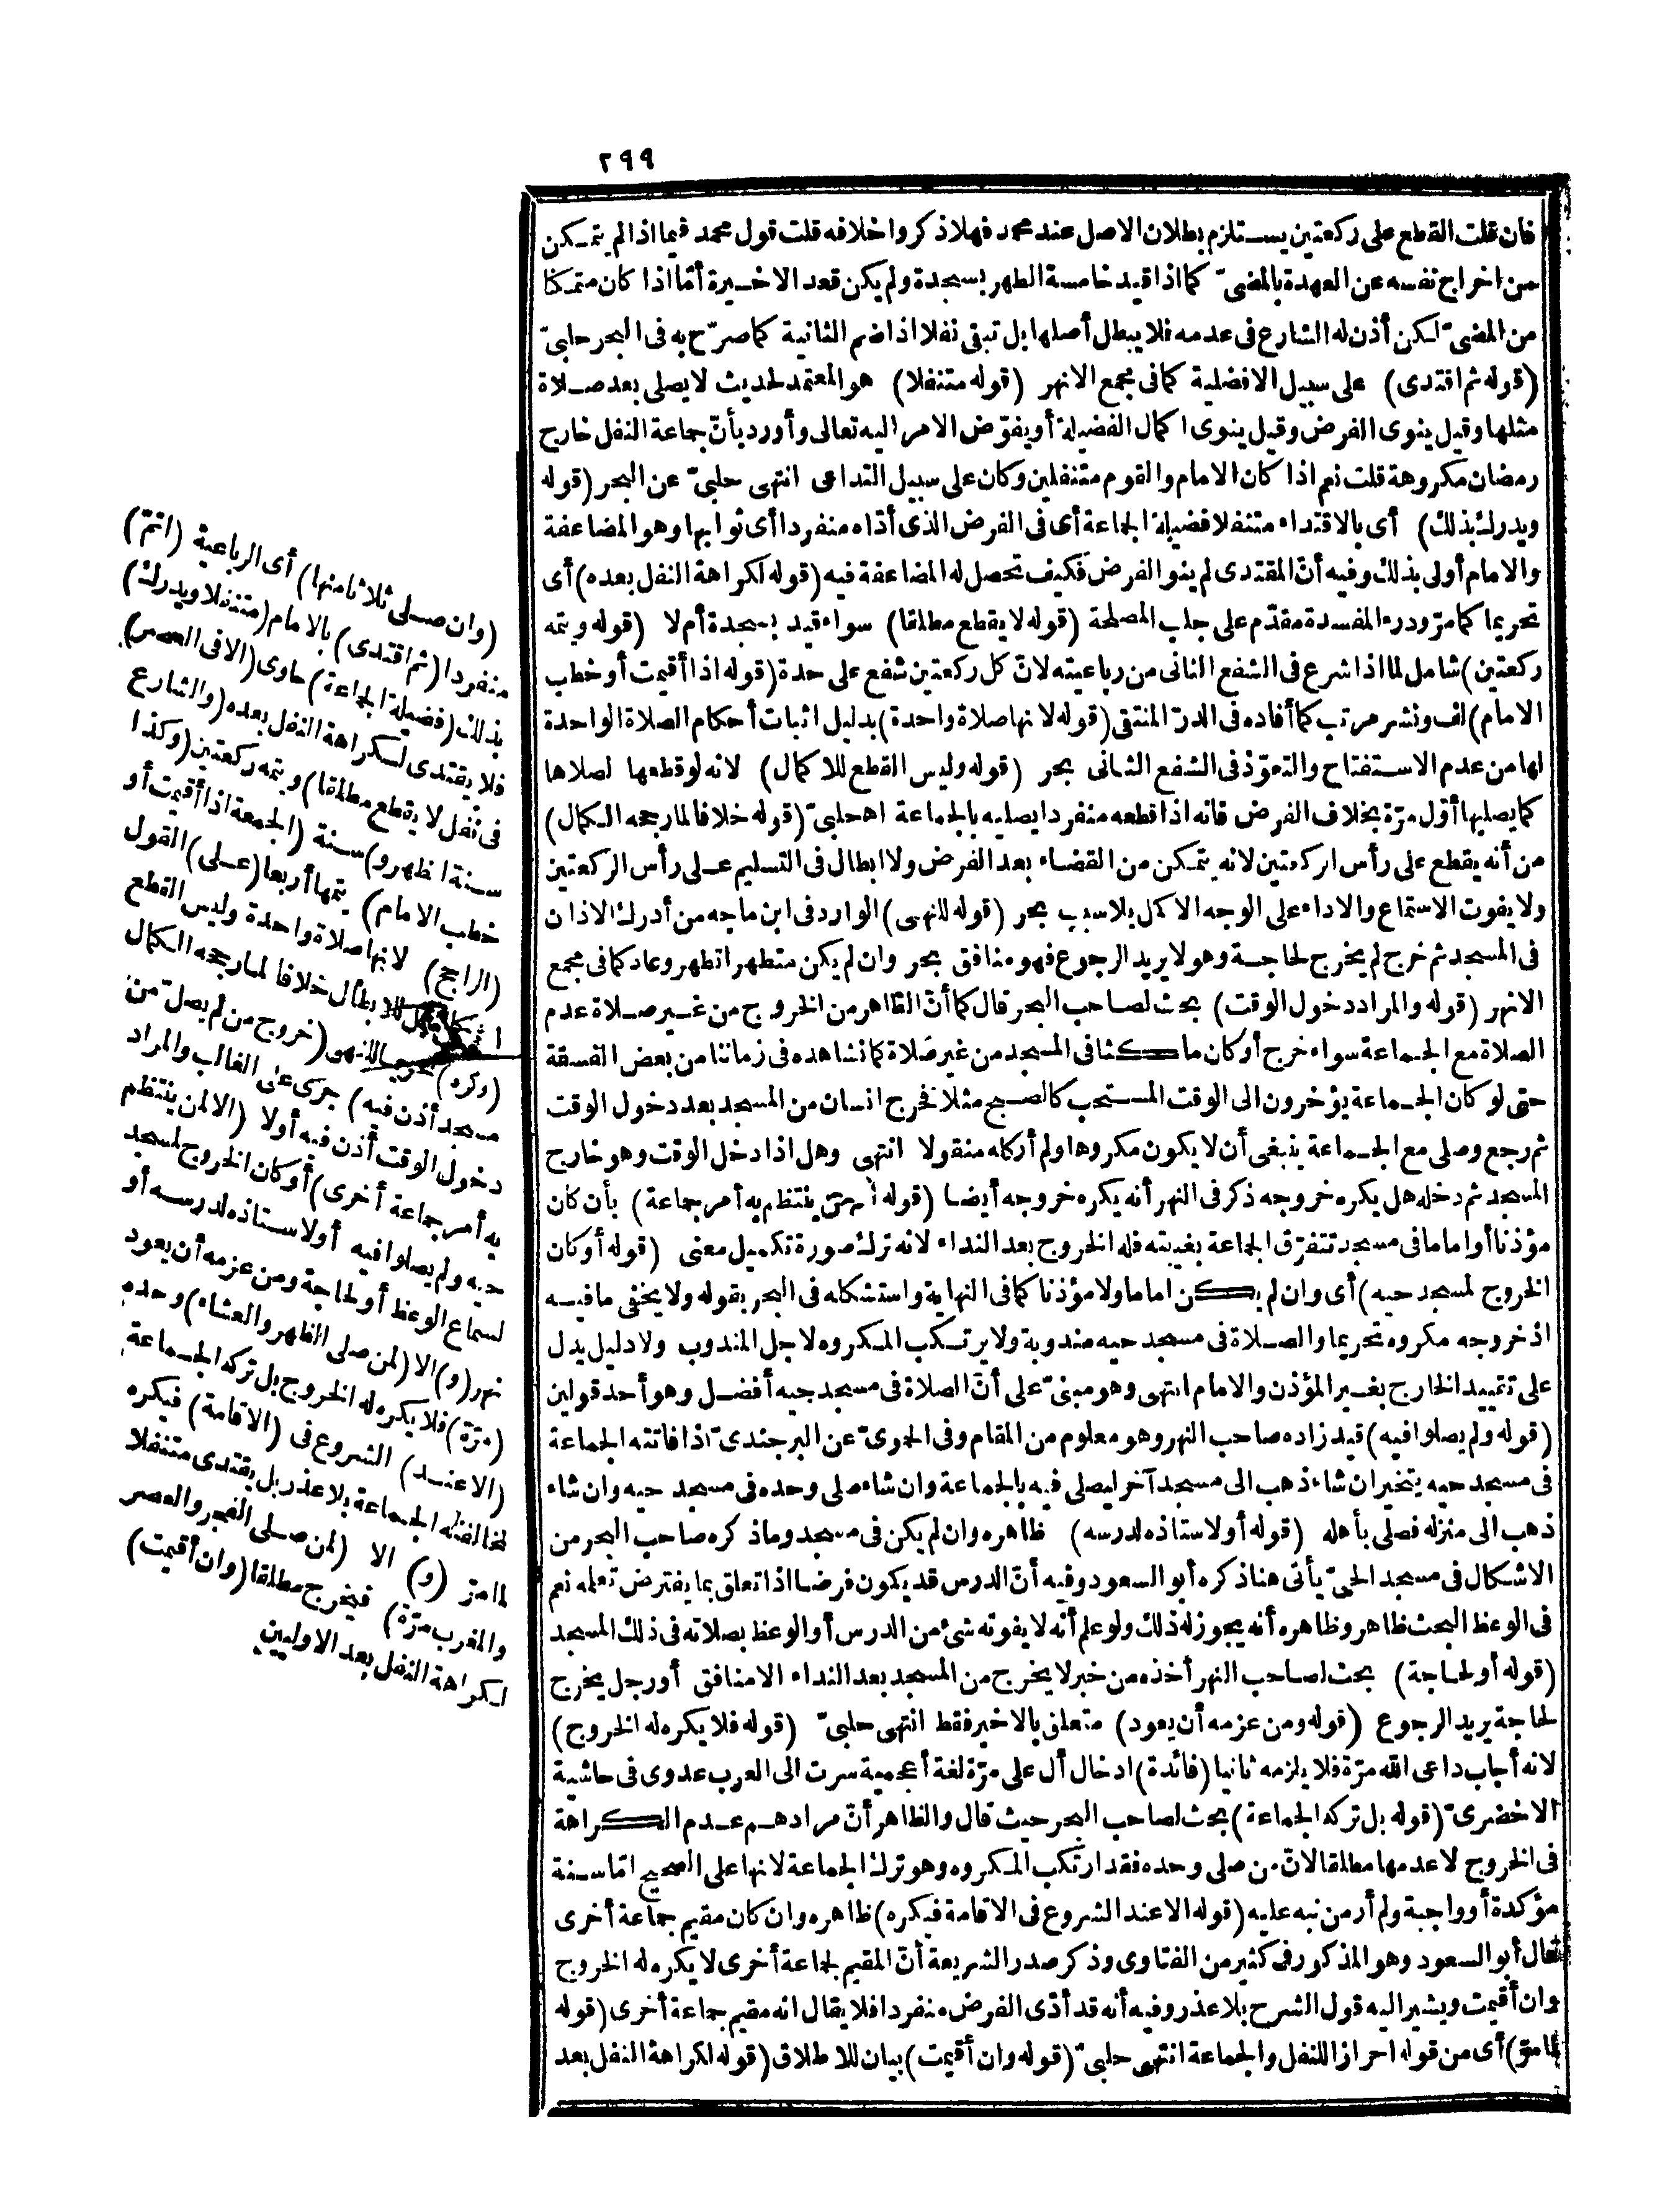 ٢٩٩
فان قلت القطع على ركعتين يستلزم بطلان الاصل عند محمد فهلاذكروا خلافه قلت قول محمد فيما اذا لم يتمكن
من اخراج نفسه عن العهدة بالمضىّ كما اذا قيد خامسة الظهر بسجدة ولم يكن قعد الاخيرة أمّا اذا كان متمكنا
من المضىّ لكن أذن له الشارع فى عدمه فلا يبطل أصلها بل تبقى نفلا اذا ضم الثانية كما صرّح به فى البحر حلبىّ
(قوله ثم اقتدى) على سبيل الافضلية كما فى مجمع الانهر (قوله متنفلا) هو المعتمد لحديث لا يصلى بعد صلاة
مثلها وقيل ينوى الفرض وقيل ينوى اكمال الفضيلة أو يفوّض الامر اليه تعالى وأورد بأنّ جماعة النفل خارج
رمضان مكروهة قلت نعم اذا كان الامام والقوم متنفلين وكان على سبيل التداعى انتهى حلبىّ عن البحر (قوله
ويدرك بذلك) أى بالاقتداء متنفلا فضيلة الجماعة أى فى الفرض الذى أدّاه منفردا أى ثوابها وهو المضاعفة
والامام أولى بذلك وفيه أنّ المقتدى لم ينو الفرض فكيف تحصل له المضاعفة فيه (قوله لكراهة النفل بعده) أى
تحريما كما مرّ ودرء المفسدة مقدّم على جلب المصلحة (قوله لا يقطع مطلقا) سواء قيد بسجدة أم لا (قوله ويتمه
ركعتين) شامل لما اذا شرع فى الشفع الثانى من رباعيته لانّ كل ركعتين شفع على حدة (قوله اذا أقيمت أو خطب
الامام) لف ونشر مرتب كما أفاده فى الدرّ المنتقى (قوله لانها صلاة واحدة) بدليل اثبات أحكام الصلاة الواحدة
لها من عدم الاستفتاح والتعوّذ فى الشفع الثانى بحر (قوله وليس القطع للاكمال) لانه لو قطعها لصلاها
كما يصليها أوّل مرّة بخلاف الفرض فانه اذا قطعه منفردا يصليه بالجماعة اه حلبىّ (قوله خلافا لما رجحه الكمال)
من أنه يقطع على رأس الركعتين لانه يتمكن من القضاء بعد الفرض ولا ابطال فى التسليم على رأس الركعتين
ولا يفوت الاستماع والاداء على الوجه الاكمل بلا سبب بحر (قوله للنهى) الوارد فى ابن ماجه من أدرك الاذان
فى المسجد ثم خرج لم يخرج لحاجة وهو لا يريد الرجوع فهو منافق بحر وان لم يكن متطهرا تطهر وعاد كما فى مجمع
الانهر (قوله والمراد دخول الوقت) بحث لصاحب البحر قال كما أنّ الظاهر من الخروج من غير صلاة عدم
الصلاة مع الجماعة سواء خرج أو كان ماكثا فى المسجد من غير صلاة كما نشاهده فى زماننا من بعض الفسقة
حتى لو كان الجماعة يؤخرون الى الوقت المستحب كالصبح مثلا فخرج انسان من المسجد بعد دخول الوقت
ثم رجع وصلى مع الجماعة ينبغى أن لا يكون مكروها ولم أركله منقولا انتهى وهل اذا دخل الوقت وهو خارج
المسجد ثم دخله هل يكره خروجه ذكر فى النهر أنه يكره خروجه أيضا (قوله ينتظم به أمر جماعة) بأن كان
مؤذنا أو اماما فى مسجد تتفرّق الجماعة بغيبته فله الخروج بعد النداء لانه ترك صورة تكميل معنى (قوله أو كان
الخروج لمسجد حيه) أى وان لم يكن اماما ولا مؤذنا كما فى النهاية واستشكله فى البحر بقوله ولا يخفى ما فيه
اذ خروجه مكروه تحريما والصلاة فى مسجد حيه مندوبة ولا يرتكب المكروه لاجل المندوب ولا دليل يدل
على تقييد الخارج بغير المؤذن والامام انتهى وهو مبنىّ على أنّ الصلاة فى مسجد حيه أفضل وهو أحد قولين
(قوله ولم يصلوا فيه) قيد زاده صاحب النهر وهو معلوم من المقام وفى الحموىّ عن البرجندىّ اذا فاتته الجماعة
فى مسجد حيه يتخير ان شاء ذهب الى مسجد آخر ليصلى فيه بالجماعة وان شاء صلى وحده فى مسجد حيه وان شاء
ذهب الى منزله فصلى بأهله (قوله أو لاستاذه لدرسه) ظاهره وان لم يكن فى مسجد وما ذكره صاحب البحر من
الاشكال فى مسجد الحىّ يأتى هنا ذكره أبو السعود وفيه أنّ الدرس قد يكون فرضا اذا تعلق بما يفترض تعلمه نعم
فى الوعظ البحث ظاهر وظاهره أنه يجوز له ذلك ولو علم أنّه لا يفوته شئ من الدرس أو الوعظ بصلاته فى ذلك المسجد
(قوله أو لحاجة) بحث لصاحب النهر أخذه من خبر لا يخرج من المسجد بعد النداء الا منافق أو رجل يخرج
لحاجة يريد الرجوع (قوله ومن عزمه أن يعود) متعلق بالاخير فقط انتهى حلبىّ (قوله فلا يكره له الخروج)
لانه أجاب داعى الله مرّة فلا يلزمه ثانيا (فائدة) ادخال أل على مرّة لغة أعجمية سرت الى العرب عدوى فى حاشية
الاخضرىّ (قوله بل تركه الجماعة) بحث لصاحب البحر حيث قال والظاهر أنّ مرادهم عدم الكراهة
فى الخروج لا عدمها مطلقا لانّ من صلى وحده فقد ارتكب المكروه وهو ترك الجماعة لانها على الصحيح امّا سنة
مؤكدة أو واجبة ولم أر من نبه عليه (قوله الا عند الشروع فى الاقامة فيكره) ظاهره وان كان مقيم جماعة أخرى
قال أبو السعود وهو المذكور فى كثير من الفتاوى وذكر صدر الشريعة أنّ المقيم لجماعة أخرى لا يكره له الخروج
وان أقيمت ويشير اليه قول الشرح بلا عذر وفيه أنه قد أدّى الفرض منفردا فلا يقال انه مقيم جماعة أخرى (قوله
لما مرّ) أى من قوله احرازا للنفل والجماعة انتهى حلبىّ (قوله وان أقيمت) بيان للاطلاق (قوله لكراهة النفل بعد
(وان صلى ثلاثا منها) أى الرباعية (اتمّ)
منفردا (ثم اقتدى) بالامام (متنفلا ويدرك)
بذلك (فضيلة الجماعة) حاوى (الا فى العصر)
فلا يقتدى لكراهة النفل بعده (والشارع
فى نفل لا يقطع مطلقا) ويتمه ركعتين (وكذا
سنة الظهر و) سنة (الجمعة اذا أقيمت أو
خطب الامام) يتمها أربعا (على) القول
(الراجح) لانها صلاة واحدة وليس القطع
للابطال خلافا لما رجحه الكمال
(وكره) للنهى (خروج من لم يصلّ من
مسجد أذن فيه) جرى على الغالب والمراد
دخول الوقت أذن فيه أولا (الا لمن ينتظم
به أمر جماعة أخرى) أو كان الخروج لمسجد
حيه ولم يصلوا فيه أو لاستاذه لدرسه أو
لسماع الوعظ أو لحاجة ومن عزمه أن يعود
نهر (و) الا (لمن صلى الظهر والعشاء) وحده
(مرّة) فلا يكره له الخروج بل تركه الجماعة
(الا عند) الشروع فى (الاقامة) فيكره
لمخالفته الجماعة بلا عذر بل يقتدى متنفلا
لما مرّ (و) الا (لمن صلى الفجر والعصر
والمغرب مرّة) فيخرج مطلقا (وان أقيمت)
لكراهة النفل بعد الاوليين